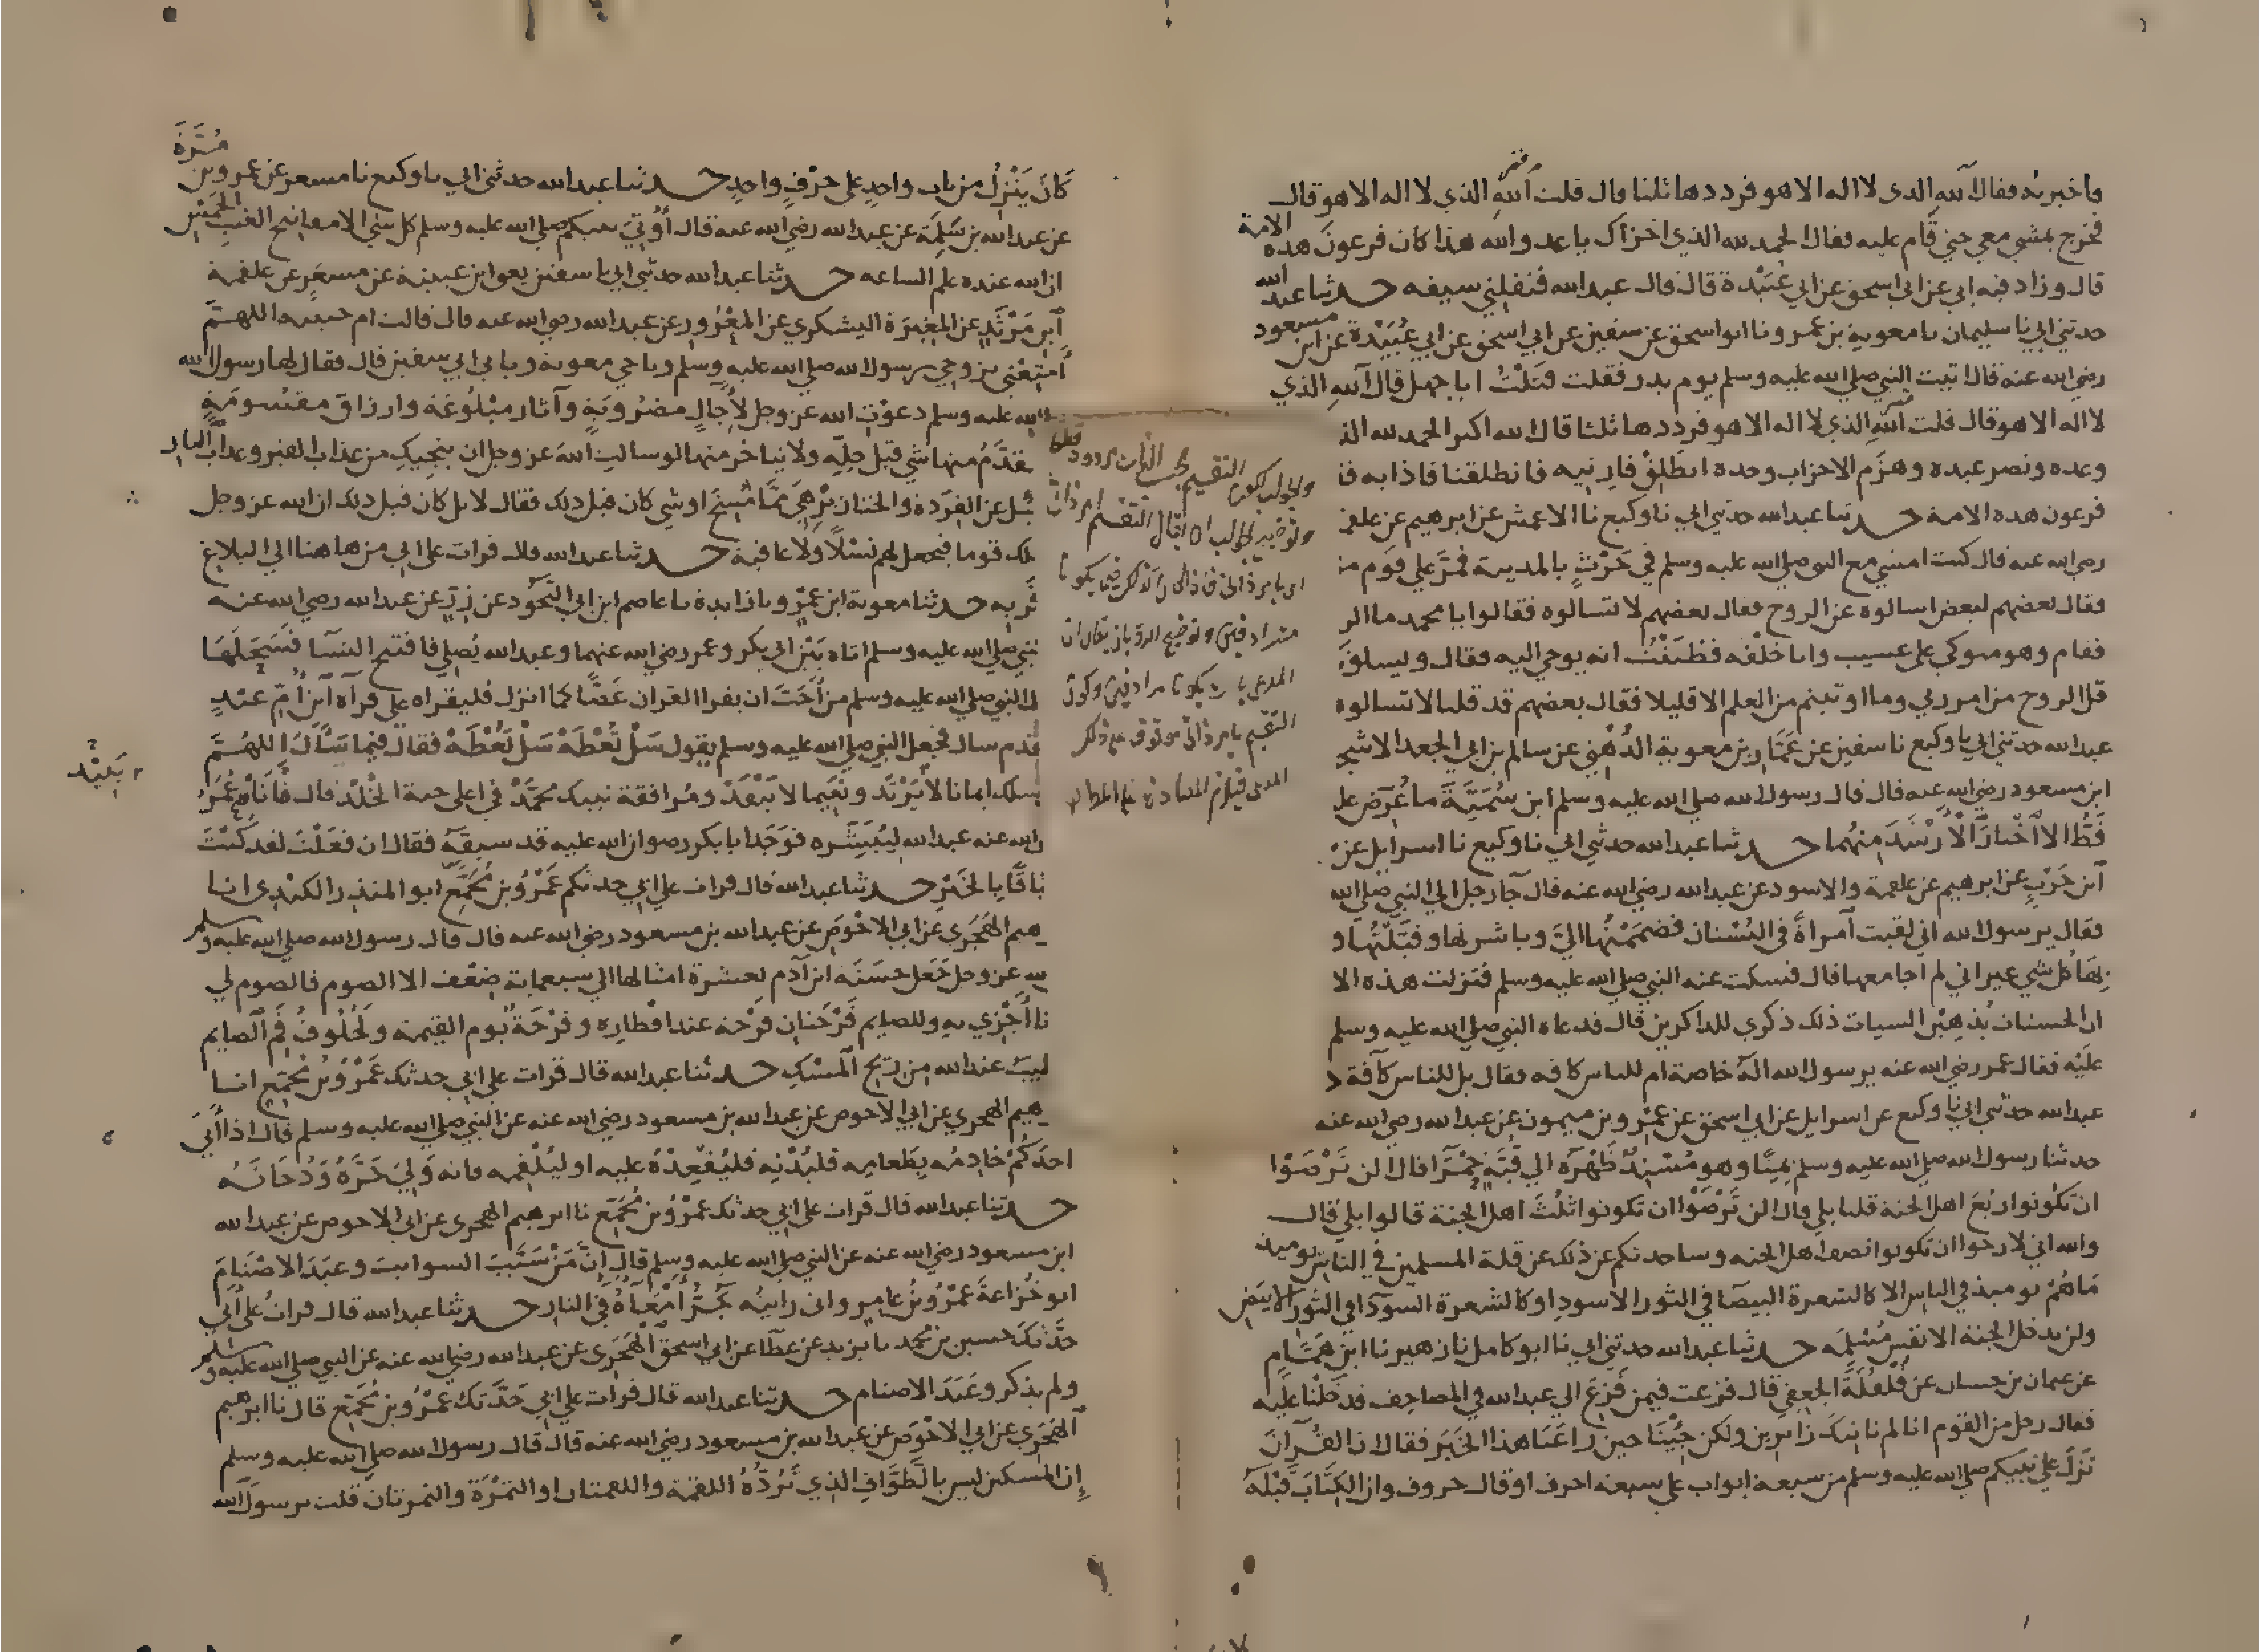 فاخبرته فقال آلله الذي لا اله الا هو فرددها ثلثا قال قلت آلله الذي لا اله الا هو قال
فخرج يمشي معي حتي قام عليه فقال الحمد لله الذي اخزاك يا عدو الله هذا كان فرعون هذه الامة
قال وزاد فيه ابي عن ابي اسحق عن ابي عبيدة قال قال عبد الله فنفلني سيفه حدثنا عبد الله
حدثني ابي نا سليمان نا معوية بن عمرو نا ابو اسحق عن سفين عن ابي اسحق عن ابي عبيدة عن ابن مسعود
رضي الله عنه قال اتيت النبي صلي الله عليه وسلم يوم بدر فقلت قتلت ابا جهل قال آلله الذي
لا اله الا هو قال قلت آلله الذي لا اله الا هو فرددها ثلثا قال الله اكبر الحمد لله الذ
وعده ونصر عبده وهزم الاحزاب وحده انطلق فارنيه فانطلقنا فاذا به فا
فرعون هذه الامة حدثنا عبد الله حدثني ابي نا وكيع نا الاعمش عن ابرهيم عن علقم
رضي الله عنه قال كنت امشي مع النبي صلي الله عليه وسلم في حرث بالمدينة فمر علي قوم من
فقال بعضهم لبعض اسالوه عن الروح فقال بعضهم لا تسالوه فقالوا يا محمد ما الر
فقام وهو متوكي علي عسيب وانا خلفه فظننت انه يوحي اليه فقال ويسلون
قل الروح من امر ربي وما اوتيتم من العلم الا قليلا فقال بعضهم قد قلنا لا تسالوه
عبد الله حدثني ابي نا وكيع نا سفين عن عمار بن معوية الدهني عن سالم بن ابي الجعد الاشج
ابن مسعود رضي الله عنه قال قال رسول الله صلي الله عليه وسلم ابن سمية ما عرض علي
قط الا اختار الارشد منهما حدثنا عبد الله حدثني ابي نا وكيع نا اسرايل عن
ابن حرب عن ابرهيم عن علقمة والاسود عن عبد الله رضي الله عنه قال جا رجل الي النبي صلي الله
فقال يرسول الله اني لقيت امراة في البستان فضممتها الي وباشرتها وقبلتها و
بها كل شي غير اني لم اجامعها قال فسكت عنه النبي صلي الله عليه وسلم فنزلت هذه الا
ان الحسنات يذهبن السيات ذلك ذكري للذاكرين قال فدعاه النبي صلي الله عليه وسلم
عليه فقال عمر رضي الله عنه يرسول الله اله خاصة ام للناس كافه فقال بل للناس كافة
عبد الله حدثني ابي نا وكيع عن اسرايل عن ابي اسحق عن عمرو بن ميمون عن عبد الله رضي الله عنه
حدثنا رسول الله صلي الله عليه وسلم بمنا وهو مسند ظهره الي قبة حمرا قال الن ترضوا
ان تكونوا ربع اهل الجنة قلنا بلي قال الن ترضوا ان تكونوا ثلث اهل الجنة قالوا بلي قال
والله اني لارجوا ان تكونوا نصف اهل الجنه وساحدثكم عن ذلك عن قلة المسلمين في الناس يوميذ
ما هم يوميذ في الناس الا كالشعرة البيضا في الثور الاسود او كالشعرة السودا في الثور الابيض
ولن يدخل الجنة الا نفس مسلمه حدثنا عبد الله حدثني ابي نا ابو كامل نا زهير نا ابن همام
عن عثمان بن حسان عن فلفلة الجعفي قال فزعت فيمن فزع الي عبد الله في المصاحف فدخلنا عليه
فقال رجل من القوم انا لم ناتك زايرين ولكن جينا حين راعنا هذا الخبر فقال ان القران
نزل علي نبيكم صلي الله عليه وسلم من سبعة ابواب علي سبعة احرف او قال حروف وان الكتاب قبله
كان ينزل من باب واحد علي حرف واحد حدثنا عبد الله حدثني ابي نا وكيع نا مسعر عن عمرو بن مرة
عن عبد الله بن سلمة عن عبد الله رضي الله عنه قال اوتي نبيكم صلي الله عليه وسلم كل شي الا مفاتيح الغيب الخمس
ان الله عنده علم الساعه حدثنا عبد الله حدثني ابي نا سفين يعني ابن عيينة عن مسعر عن علقمة
ابن مرثد عن المغيرة اليشكري عن المعرور عن عبد الله رضي الله عنه قال قالت ام حبيبه اللهم
امتعني بزوجي رسول الله صلي الله عليه وسلم وباخي معوية وبابي ابي سفين قال فقال لها رسول الله
الله عليه وسلم دعوت الله عز وجل لاجال مضروبة وآثار مبلوغة وارزاق مقسومة
يتقدم منها شي قبل حله ولا يتاخر منها لو سالت الله عز وجل ان ينجيك من عذاب القبر وعذاب النار
ئل عن القردة والخنازير هي مما مسخ او شي كان قبل ذلك فقال لا بل كان قبل ذلك ان الله عز وجل
لك قوما فيجعل لهم نسلا ولا عاقبة حدثنا عبد الله قال قرات علي ابي من ها هنا الي البلاغ
قر به حدثنا معوية ابن عمرو نا زايدة نا عاصم ابن ابي النجود عن زر عن عبد الله رضي الله عنه
النبي صلي الله عليه وسلم اتاه بين ابي بكر وعمر رضي الله عنهما وعبد الله يصلي فافتتح النسا فسجلها
ل النبي صلي الله عليه وسلم من احب ان يقرا القران غضا كما انزل فليقراه علي قراة ابن ام عبد
تقدم سال فجعل النبي صلي الله عليه وسلم يقول سل تعطه سل تعطه فقال فيما سال اللهم
اسلك ايمانا لا يرتد ونعيما لا ينفد ومرافقة نبيك محمد في اعلي جنة الخلد قال فاتاه عمر
الله عنه عبد الله ليبشره فوجد ابا بكر رضوان الله عليه قد سبقه فقال ان فعلت لقد كنت
باقا بالخير حدثنا عبد الله قال قرات علي ابي حدثكم عمرو بن مجمع ابو المنذر الكندي انا
هيم الهجري عن ابي الاحوص عن عبد الله بن مسعود رضي الله عنه قال قال رسول الله صلي الله عليه وسلم
لله عز وجل جعل حسنة ابن آدم بعشرة امثالها الي سبعماية ضعف الا الصوم فالصوم لي
نا اجزي به وللصايم فرحتان فرحة عند افطاره وفرحة يوم القيمة ولخلوف فم الصايم
طيب عند الله من ريح المسك حدثنا عبد الله قال قرات علي ابي حدثك عمرو بن مجمع انا
هيم الهجري عن ابي الاحوص عن عبد الله بن مسعود رضي الله عنه عن النبي صلي الله عليه وسلم قال اذا اتي
احدكم خادمه بطعامه فليدنه فليقعده عليه او ليلقمه فانه ولي حره ودخانه
حدثنا عبد الله قال قرات علي ابي حدثك عمرو بن مجمع نا ابرهيم الهجري عن ابي الاحوص عن عبد الله
ابن مسعود رضي الله عنه عن النبي صلي الله عليه وسلم قال ان من سيب السوايب وعبد الاصنام
ابو خزاعة عمرو بن عامر واني رايته يجر امعاه في النار حدثنا عبد الله قال قرات علي ابي
حدثك حسين بن محمد نا يزيد عن عطا عن ابي اسحق الهجري عن عبد الله رضي الله عنه عن النبي صلي الله عليه وسلم
ولم يذكر وعبد الاصنام حدثنا عبد الله قال قرات علي ابي حدثك عمرو بن مجمع قال نا ابرهيم
الهجري عن ابي الاحوص عن عبد الله بن مسعود رضي الله عنه قال قال رسول الله صلي الله عليه وسلم
ان المسكين ليس بالطواف الذي ترده اللقمة واللقمتان او التمرة والتمرتان قلت يرسول الله